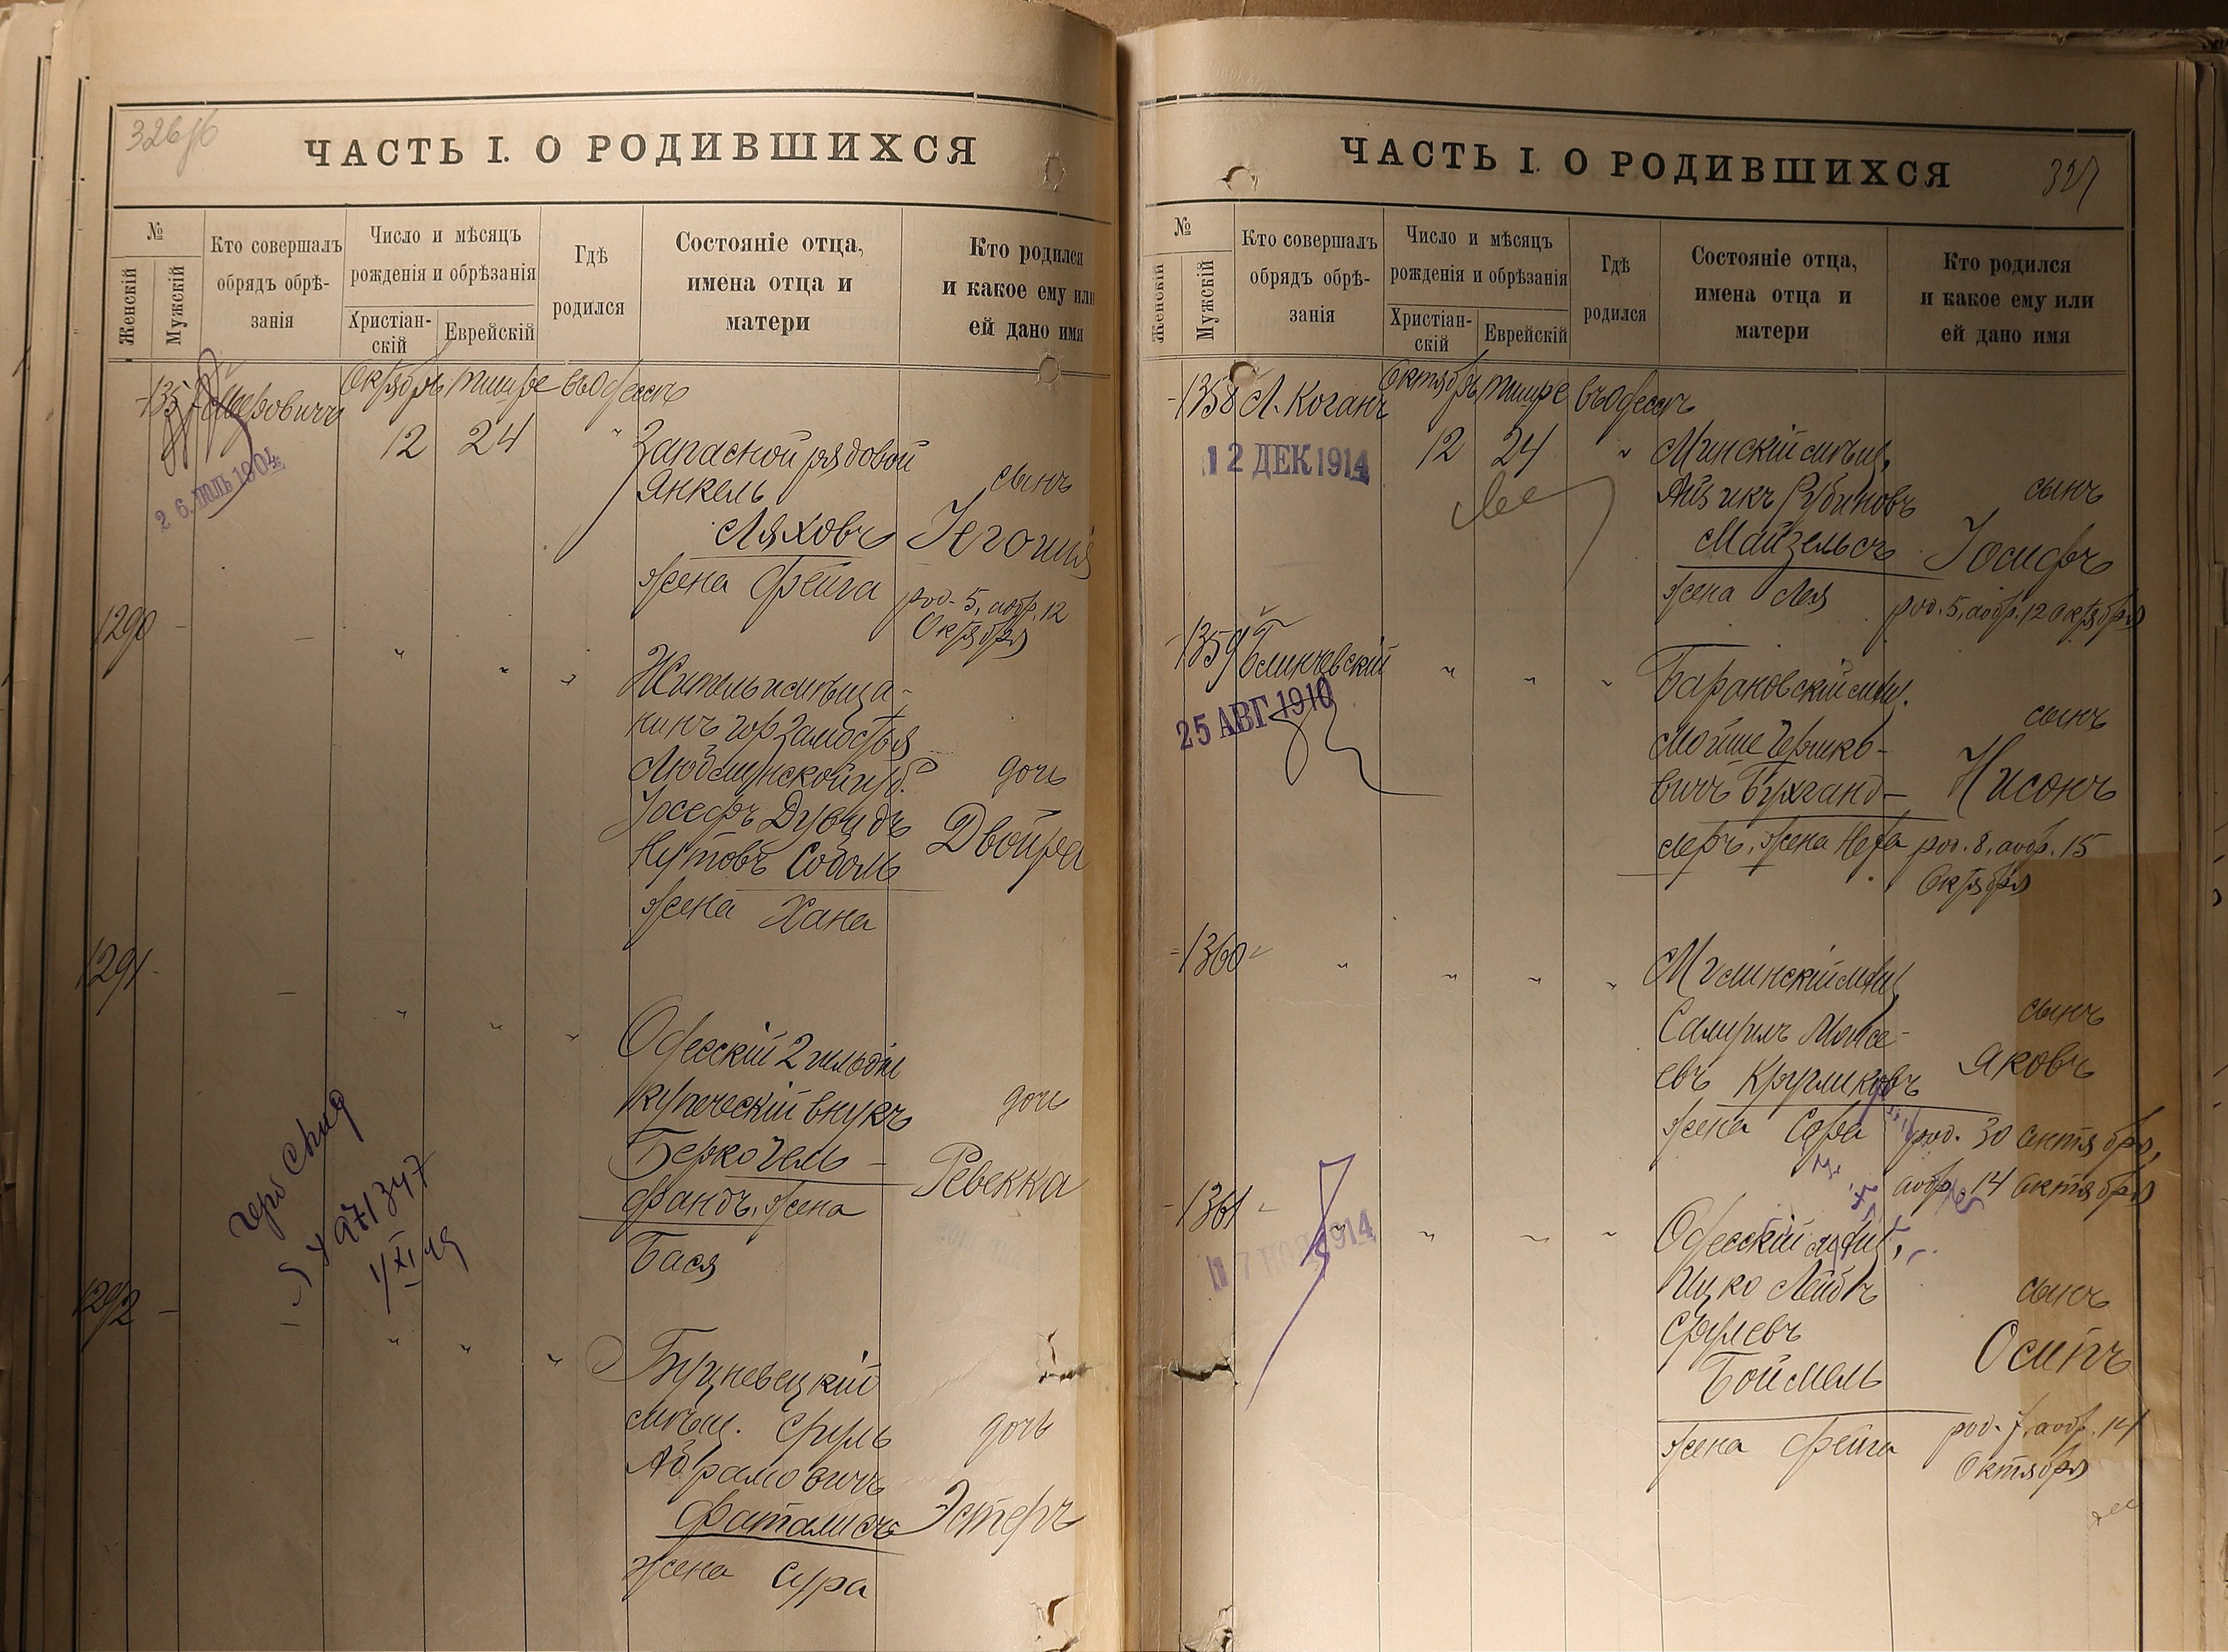 326 об
ЧАСТЬ I. О РОДИВШИХСЯ
№
Женскій
Мужскій
Кто совершалъ
обрядъ обрѣ-
занія
Число и мѣсяцъ
рожденія и обрѣзанія
Христіан-
скій
Еврейскій
Гдѣ
родился
Состояніе отца,
имена отца и
матери
Кто родился
и какое ему или
ей дано имя
Октябрь Тишре въ Одессѣ
12 24 "
26. ІЮЛЬ 1904
Запасной рядовой
Янкель
Ляховъ
жена Фейга
сынъ
род. 5, аобр. 12
Октября
1290
Житель и мѣща-
нинъ гор. Замостья
Люблинской губ.
Іосефъ Дувидъ
Нутовъ Соболь
жена Хана
дочь
Двойра
1291
Одесскій 2 гильдіи
купеческій внукъ
Берко Гель-
фандъ, жена
Бася
дочь
Ревекка
271347
1292
мѣщ. Сруль
Абрамовичъ
Фаталисъ
жена Сура
дочь
Эстеръ
327
ЧАСТЬ I. О РОДИВШИХСЯ
№
Женскій
Мужскій
Кто совершалъ
обрядъ обрѣ-
занія
Число и мѣсяцъ
рожденія и обрѣзанія
Христіан-
скій
Еврейскій
Гдѣ
родился
Состояніе отца,
имена отца и
матери
Кто родился
и какое ему или
ей дано имя
1358 Л. Коганъ Октябрь Тишре въ Одессѣ
12 24 "
12 ДЕК 1914
Минскій мѣщ.
Айзикъ Рубиновъ
Майзельсъ
жена Лея
сынъ
Іосифъ
род. 5, аобр. 12 Октября
1359 Блинчевскій " " "
25 АВГ 1910
Барановскій мѣщ.
Мойше Гершко-
вичъ Бухганд-
леръ, жена
сынъ
Нисонъ
род. 8, аобр. 15
Октября
1360 " " " "
мѣщ.
Самуилъ Моисе-
евъ Кругликовъ
жена Сура
сынъ
Яковъ
род. 30 сентября,
аобр. 14 Октября
1361 " " "
1914
Одесскій мѣщ.
Ицко Лейбъ
Срулевъ
Боймель
жена Фейга
сынъ
Осипъ
род. 7, аобр. 14
Октября